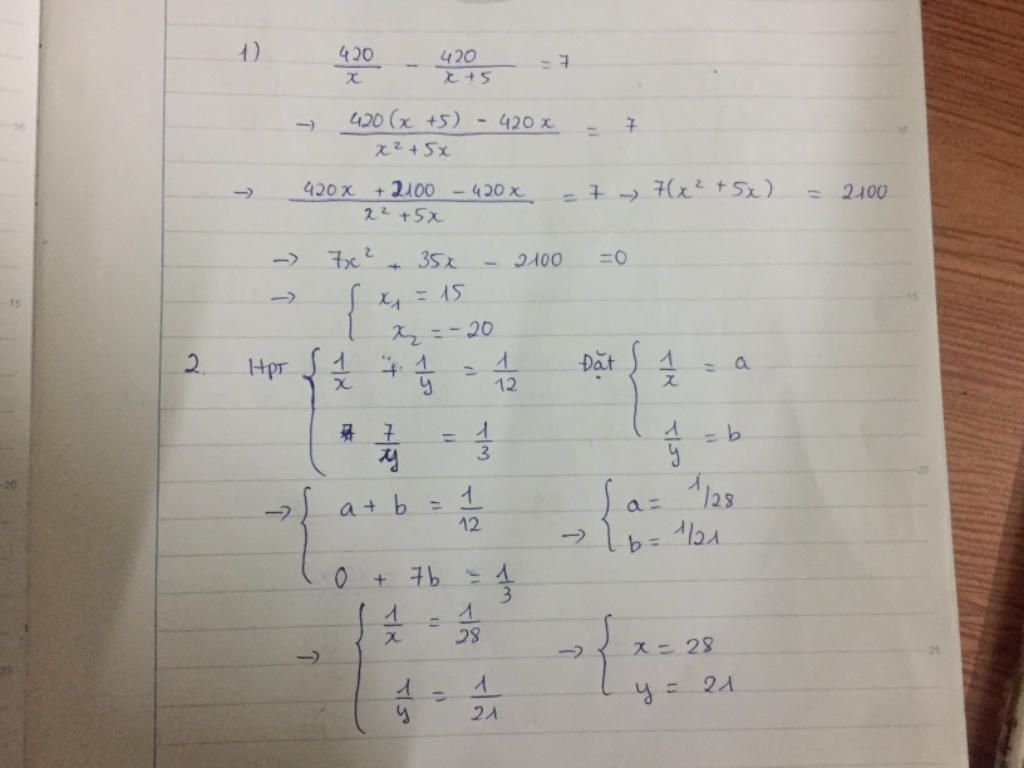 1) 420/x - 420/(x+5) = 7
→ (420(x+5) - 420x)/(x² + 5x) = 7
→ (420x + 2100 - 420x)/(x² + 5x) = 7 → 7(x² + 5x) = 2100
→ 7x² + 35x - 2100 = 0
→ { x₁ = 15
x₂ = -20
2. Hpt { 1/x + 1/y = 1/12 Đặt { 1/x = a
7/y = 1/3 1/y = b
→ { a + b = 1/12 → { a = 1/28
0 + 7b = 1/3 b = 1/21
→ { 1/x = 1/28 → { x = 28
1/y = 1/21 y = 21